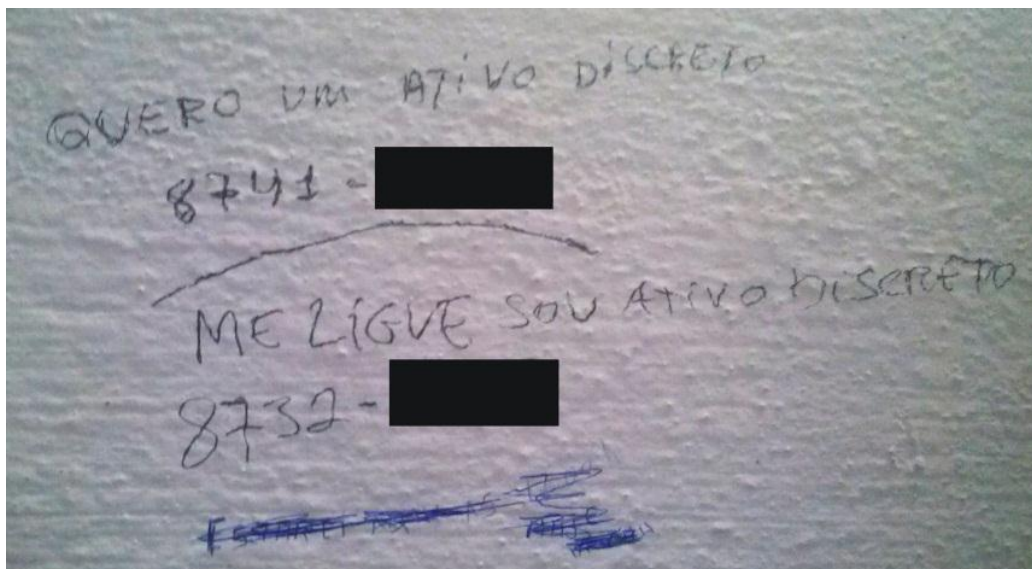 QUERO UM ATIVO DISCRETO
8741 -
ME LIGUE SOU ATIVO DISCRETO
8732 -